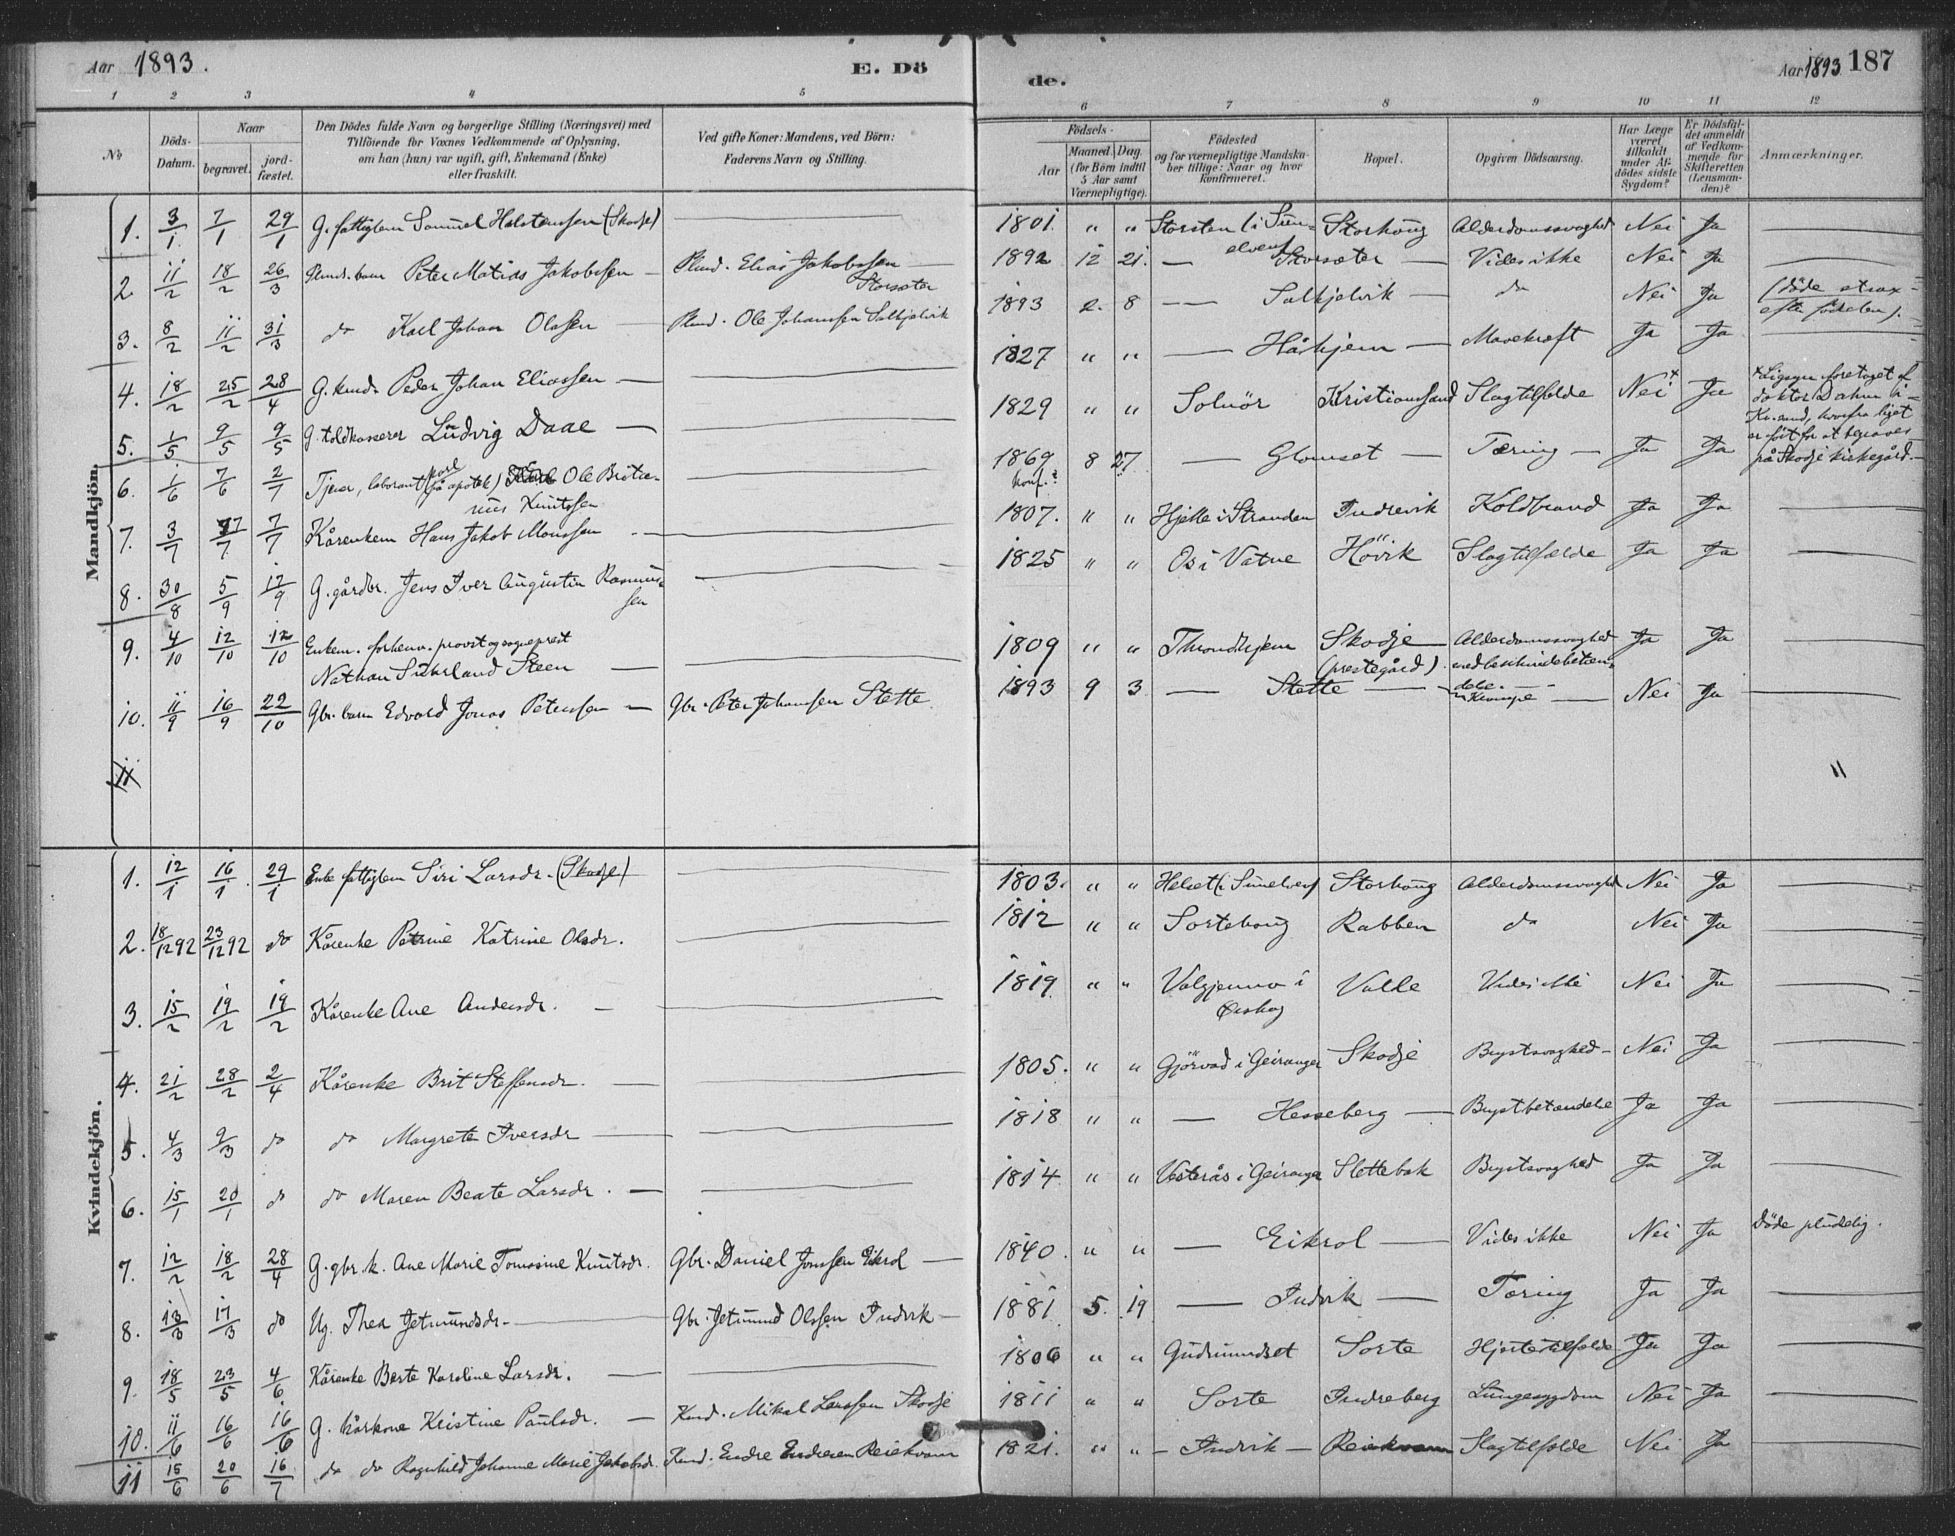 Aar 1893.
E. Dö
de.
Aar 1893 187
1 2 3 4 5 6 7 8 9 10 11 12
No
Döds-Datum.
Naar
begravet.
jord-fæstet.
Den Dödes fulde Navn og borgerlige Stilling (Næringsvei) med
Tilföiende for Voxnes Vedkommende af Oplysning,
om han (hun) var ugift, gift, Enkemand (Enke)
eller fraskilt.
Ved gifte Koner: Mandens, ved Börn:
Faderens Navn og Stilling.
Födsels-
Aar
Maaned. Dag.
(for Börn indtil
5 Aar samt
Værnepligtige).
Födested
og for værnepligtige Mandska-
ber tillige: Naar og hvor
konfirmeret.
Bopæl.
Opgiven Dödsaarsag.
Har Læge
været
tilkaldt
under Af-
dödes sidste
Sygdom?
Er Dödsfal-
det anmeldt
af Vedkom-
mende for
Skifteretten
(Lensman-
den)?
Anmærkninger.
Mandkjön.
1. 3/1 7/1 29/1 G. fattiglem Samuel Halstensen (Skodje) — 1801. " " Storhaug Alderdomssvaghed Nei Ja —
2 11/2 18/2 26/3 Plmd. barn Peter Matias Jakobssen — Plmd. Elias Jakobssen Storsæter 1892 12 21. — Storsæter — Vides ikke Nei Ja —
3. 8/2 11/2 31/3 do Karl Johan Olassen — Plmd. Ole Johanssen Solkjelvik 1893 2. 8 — Solkjelvik — do Nei Ja (döde strax efter födselen).
4. 18/2 25/2 28/4 G. Peder Johan Eliassen — — 1827 " " — Håhjem — Mavekræft Ja Ja —
5. 1/5 9/5 9/5 G. toldkasserer Ludvig Daae — — 1829 " " Solnör Kristianssund Slagtilfælde Nei+ Ja +Ligsyn foretaget af
doktor Dahm i
Kr.sund, hvorfra liget
er fört for at begraves
på Skodje kirkegård. —
6. 1/6 7/6 2/7 Tjener, laborant (på apotek) Karl Ole Knutssen — 1869 konf.? 8 27 — Glomset — Tæring — Ja Ja
7. 3/7 7/7 7/7 Kårenkem Hans Jakob Monssen — — 1807. " " Hjelle i Stranden Indrevik Koldbrand Ja Ja —
8. 30/8 5/9 17/9 G. gårdbr. Jens Iver Augustin Rasmussen — 1825 " " Os i Vatne Hövik Slagtilfælde Ja Ja —
9. 4/10 12/10 12/10 Enkem. forhenv. provst og sogneprest
Nathan Steen — — 1809 " " Throndhjem Skodje (prestegård). Alderdomssvaghed Ja Ja —
10. 11/9 16/9 22/10 Gbr. barn Edvard Jonas Peterssen — Gbr. Peter Johanssen Stette 1893 9 3 — Stette — Krampe — Nei Ja —
11 "
Kvindekjön.
1. 12/1 16/1 29/1 Enke fattiglem Siri Larsdr. (Skodje) — 1803. " " Helset (i Sunelven) Storhaug Alderdomssvaghed Nei Ja —
2. 18/12 92 23/12 92 do Kårenke Petrine Katrine Olsdr. — 1812 " " Sortehaug Rabben do Nei Ja —
3. 15/2 19/2 19/2 Kårenke Ane Andersdr. — — 1819 " " i Ørskog Valle Vides ikke Nei Ja —
4. 21/2 28/2 2/4 Kårenke Brit Steffensdr. — — 1805. " " Gjörvad i Geiranger Skodje Brystsvaghed — Nei Ja —
5. 4/3 9/3 do do Margrete Iversdr — — 1818 " " — Hesseberg — Brystbetændelse Ja Ja —
6. 15/1 20/1 do do Maren Beate Larsdr. — — 1814 " " Vesterås i Geiranger Slettebak Brystsvaghed Ja Ja —
7. 12/2 18/2 28/4 G. gbr. k. Ane Marie Tomasine Knutsdr. Gbr. Daniel Jonssen Eikrol — 1840. " " — Eikrol — Vides ikke Nei Ja Döde pludselig.
8. 13/3 17/3 do Ug. Thea Jetmundsdr. — Gbr. Jetmund Olssen Indvik — 1881 5. 19 — Indvik — Tæring Ja Ja —
9. 18/5 23/5 4/6 Kårenke Berte Karoline Larsdr. — — 1806 " " Gudmundset Sorte Hjertetilfælde Ja Ja —
10. 11/6 16/6 16/6 G. kårkone Kristine Paulsdr. — Kmd. Mikal Larssen Skodje 1811 " " Sorte Indreberg Lungesygdom Nei Ja —
11 15/6 20/6 16/7 do do Ragnhild Johanne Marie Jakobsdr. Kmd. Endre Endresen Reiekvam 1821. " " — Indvik — Reiekvam Slagtilfælde Nei Ja —